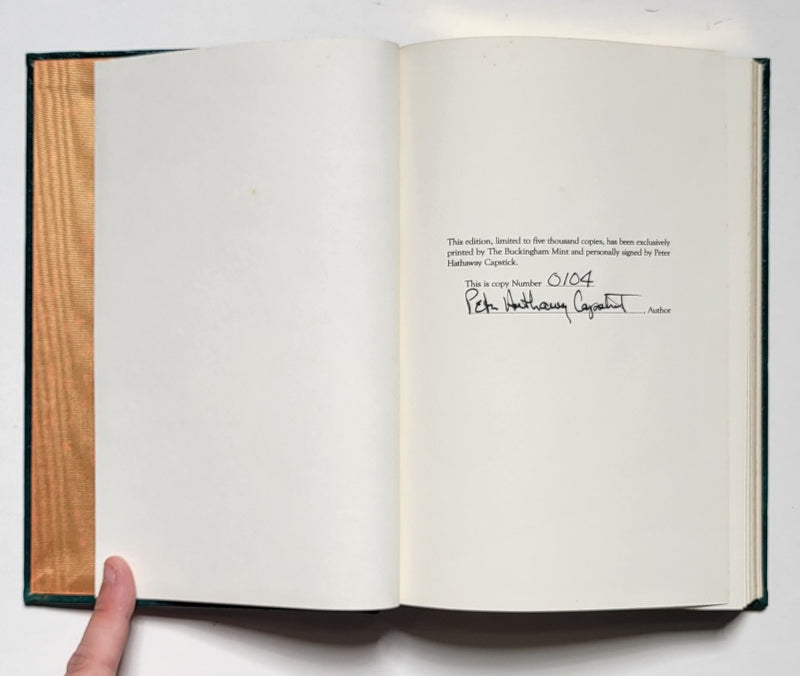 This edition, limited to five thousand copies, has been exclusively
printed by The Buckingham Mint and personally signed by Peter
Hathaway Capstick.
This is copy Number 0104
Peter Hathaway Capstick, Author